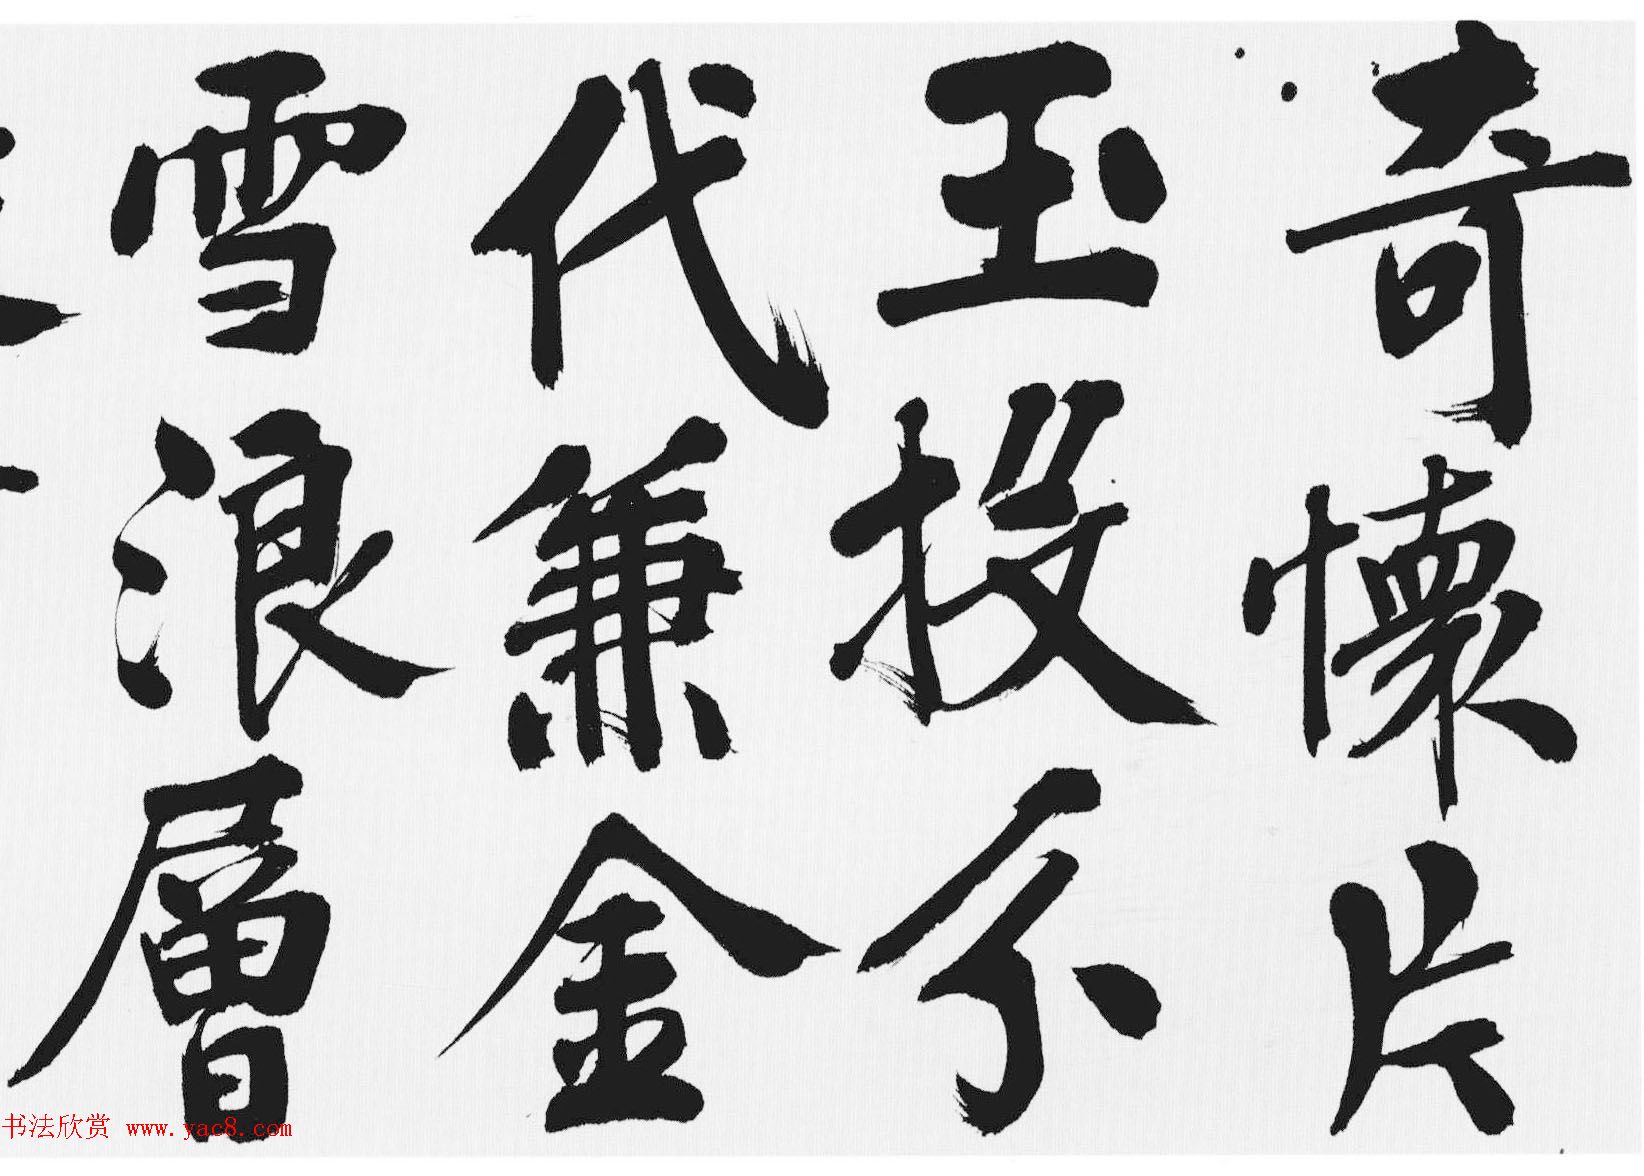 奇懷片
玉投尔
代兼金
雪浪層
书法欣赏 www.yac8.com